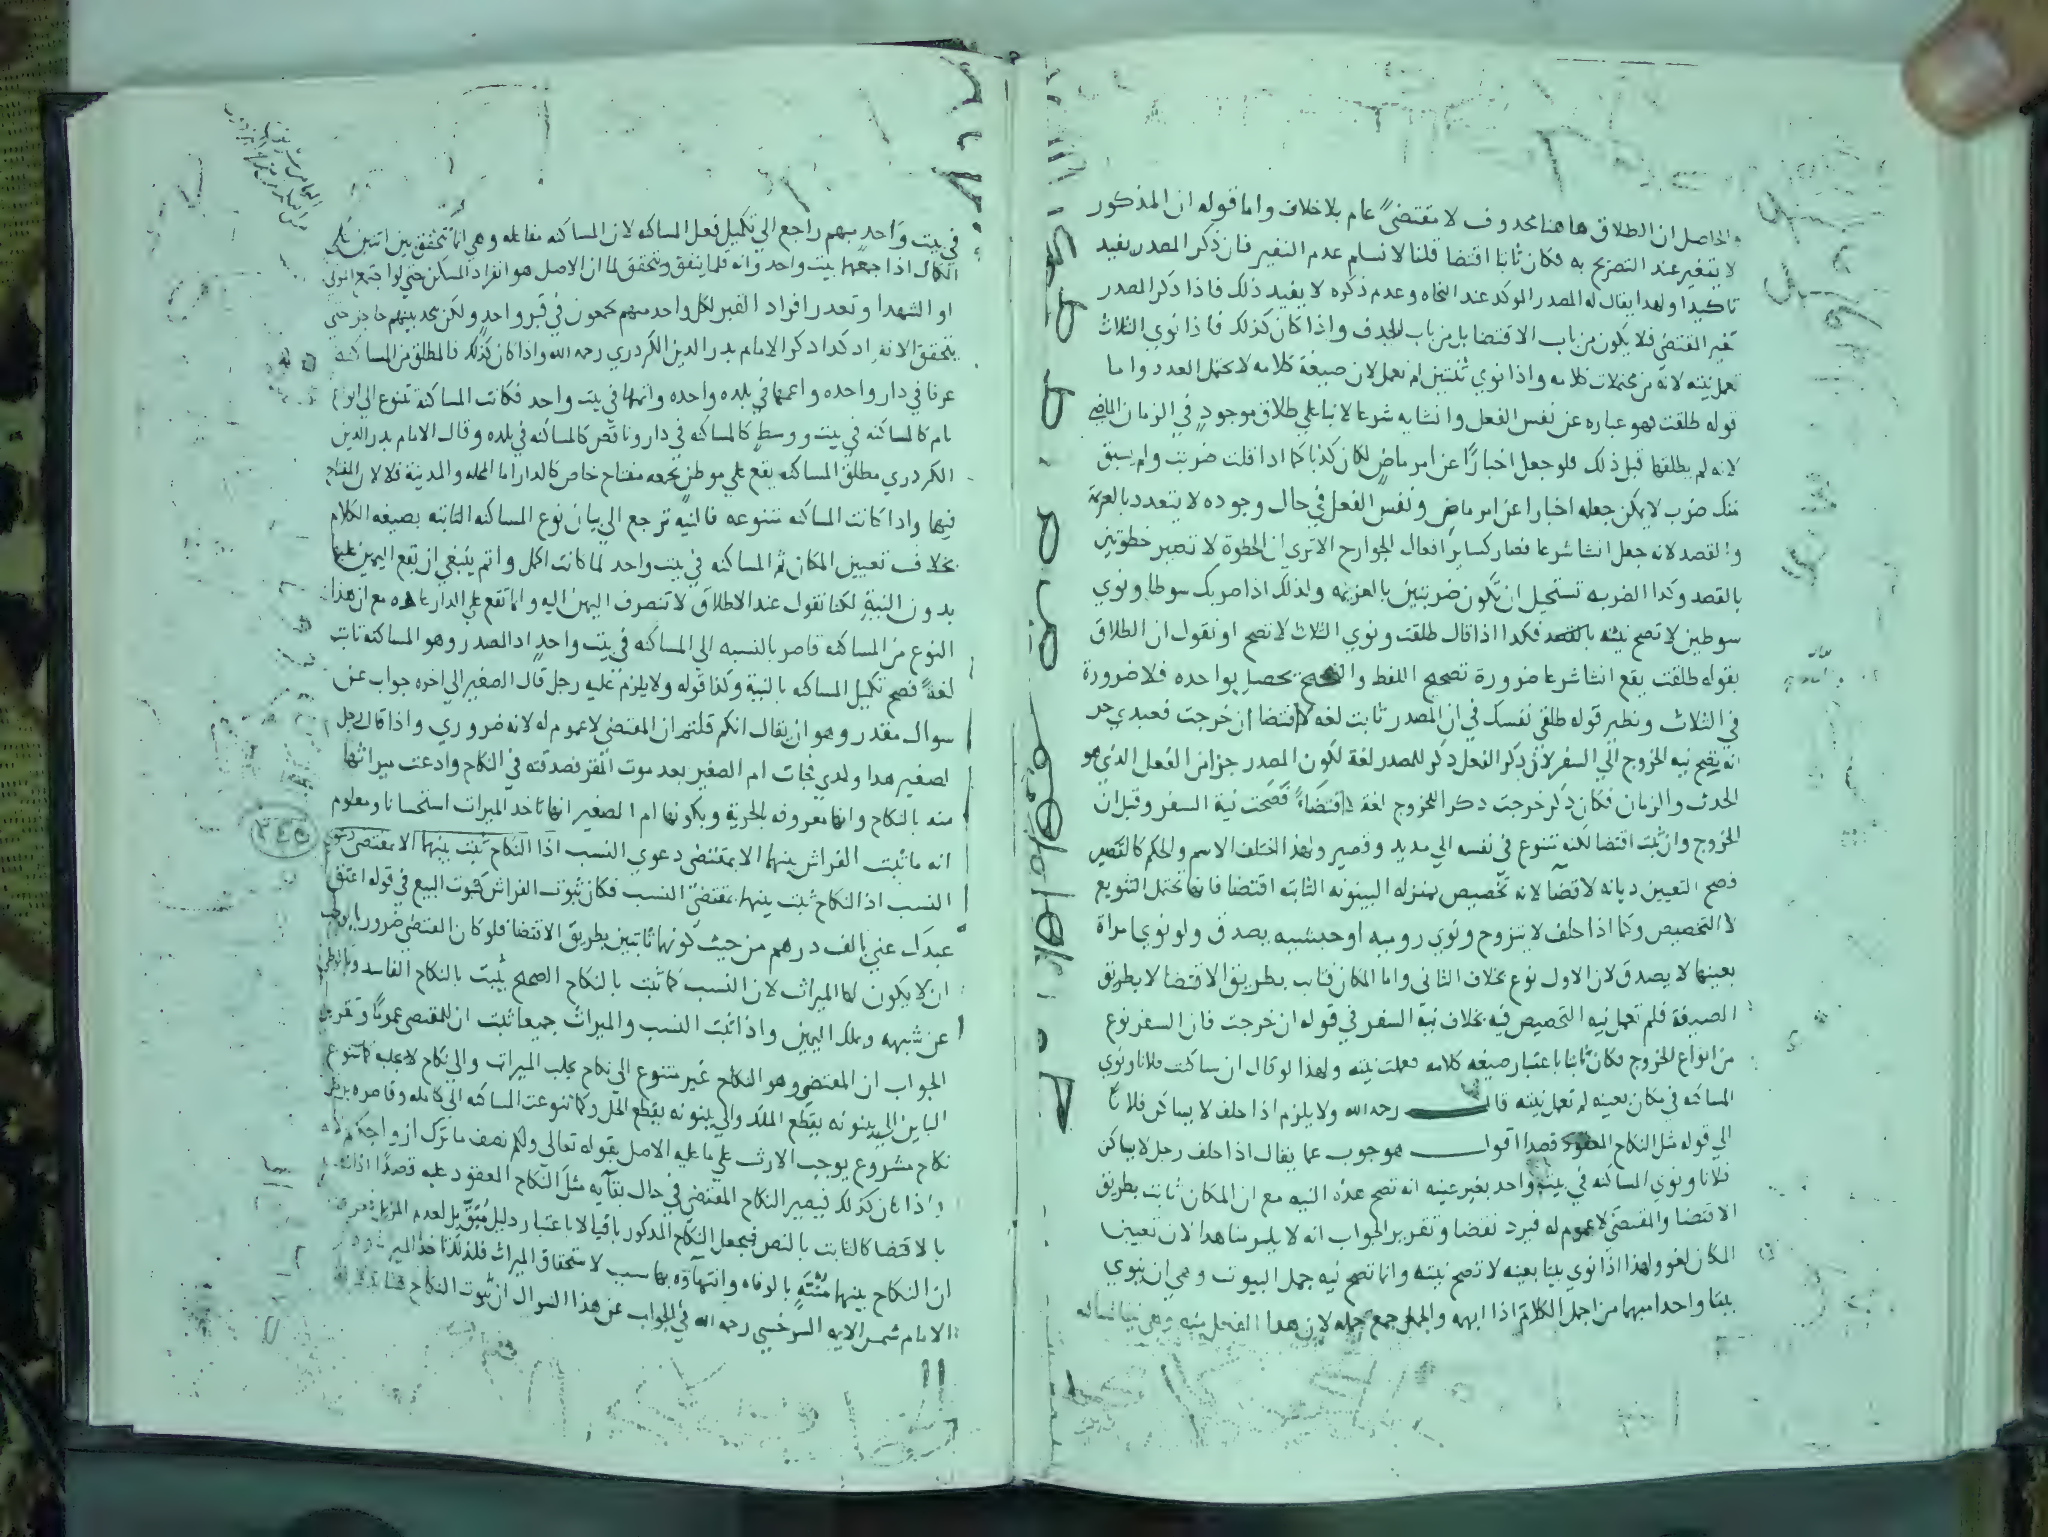 والحاصل ان الطلاق هاهنا محذوف لا مقتضىً عام بلا خلاف واما قوله ان المذكور
لا يتغير عند التصريح به فكان ثابتا اقتضا قلنا لا نسلم عدم التغير فان ذكر المصدر يفيد
تاكيدا ولهذا يقال له المصدر الموكد عند النحاه وعدم ذكره لا يفيد ذلك فاذا ذكر المصدر
تغير المقتضي فلا يكون من باب الاقتضا بل من باب الحذف واذا كان كذلك فاذا نوي الثلاث
تعمل نيته لانه من محتملات كلامه واذا نوي ثنتين لم تعمل لان صيغة كلامه لا تحتمل العدد واما
قوله طلقت فهو عباره عن نفس الفعل وانشايه شرعا لا نبا علي طلاق موجود في الزمان الماضي
لانه لم يطلقها قبل ذلك فلو جعل اخبارًا عن امر ماض لكان كذبا كما اذا قلت ضربت ولم يسبق
منك ضرب لا يمكن جعله اخبارا عن امر ماض ونفس الفعل في حال وجوده لا يتعدد بالعزيمة
والقصد لانه جعل انشا شرعا فصار كساير افعال الجوارح الا تري ان الخطوة لا تصير خطوتين
بالقصد وكذا الضربه تستحيل ان تكون ضربتين بالعزيمه ولذلك اذا ضربك سوطا ونوي
سوطين لا تصح نيته بالقصد فكذا اذا قال طلقت ونوي الثلاث لا تصح او نقول ان الطلاق
بقوله طلقت يقع انشا شرعا ضرورة تصحيح اللفظ والتصحيح يحصل بواحده فلا ضرورة
في الثلاث ونظير قوله طلقي نفسك في ان المصدر ثابت لغه لا اقتضا ان خرجت فعبدي حر
انه يصح نيه الخروج الي السفر لان ذكر الفعل ذكر للمصدر لغة لكون المصدر جزا من الفعل الذي هو
الحدث والزمان فكان ذكر خرجت ذكرا للخروج لغة لا اقتضاءً فصحت نية السفر وقيل ان
الخروج وان ثبت اقتضا لكنه متنوع في نفسه الي مديد وقصير ولهذا اختلف الاسم والحكم كالقصر
فصح التعيين ديانه لا قضآ لانه تخصيص بمنزله البينونه الثابته اقتضا فانها تحتمل التنويع
لا التخصيص وكما اذا حلف لا يتزوج ونوي روميه او حبشيه يصدق ولو نوي امراة
بعينها لا يصدق لان الاول نوع بخلاف الثاني واما المكان فثابت بطريق الاقتضا لا بطريق
الصيغة فلم تعمل نيه التخصيص فيه بخلاف نية السفر في قوله ان خرجت فان السفر نوع
من انواع الخروج فكان ثابتا باعتبار صيغه كلامه فعملت نيته ولهذا لو قال ان ساكنت فلانا ونوي
المساكنه في مكان بعينه لم تعمل نيته قال رحمه الله ولا يلزم اذا حلف لا يساكن فلانًا
الي قوله مثل النكاح المعقود قصدا اقول هو جوب عما يقال اذا حلف رجل لا يساكن
فلانا ونوي المساكنه في بيت واحد بغير عينه انه تصح هذه النيه مع ان المكان ثابت بطريق
الاقتضا والمقتضي لا عموم له فيرد نقضا وتقرير الجواب انه لا يلزمنا هذا لان تعيين
المكان لغو ولهذا اذا نوي بيتا بعينه لا تصح نيته وانما تصح نيه جمل البيوت وهي ان ينوي
بيتا واحدا مبهما من اجمل الكلام اذا ابهمه والجمل جمع جمله لان هذا الفعل
في بيت واحد مبهم راجع الي تكميل فعل المساكنه لان المساكنه مفاعله وهي انما تتحقق بين اثنين علي
الكمال اذا جمعهما بيت واحد وانه قلما يتفق ويتحقق لما ان الاصل هو انفراد المسكن حتي لو اجتمع الموتي
او الشهدا وتعذر افراد القبر لكل واحد منهم يجمعون في قبر واحد ولكن يجعل بينهم حاجز حتي
يتحقق الانفراد كذا ذكر الامام بدر الدين الكردري رحمه الله واذا كان كذلك فالمطلق من المساكنه
عرفا في دار واحده واعمها في بلده واحده واتمها في بيت واحد فكانت المساكنة تتنوع الي انواع
تام كالمساكنه في بيت ووسط كالمساكنه في دار وناقص كالمساكنه في بلده وقال الامام بدر الدين
الكردري مطلق المساكنه يقع علي موطن يجمعه مفتاح خاص كالدار اما المحله والمدينة فلا لان المفتاح
فيها واذا كانت المساكنه متنوعه فالنيه ترجع الي بيان نوع المساكنه الثابته بصيغه الكلام
بخلاف تعيين المكان ثم المساكنه في بيت واحد لما كانت اكمل واتم ينبغي ان تقع اليمين عليها
بدون النيه لكنا نقول عند الاطلاق لا تنصرف اليمين اليه وانما تقع علي الدار عاده مع ان هذا
النوع من المساكنه قاصر بالنسبه الي المساكنه في بيت واحد اذ المصدر وهو المساكنة ثابت
لغةً فصح تكميل المساكنه بالنية وكذا قوله ولا يلزم عليه رجل قال الصغير الي اخره جواب عن
سوال مقدر وهو ان يقال انكم قلتم ان المقتضي لا عموم له لانه ضروري واذا قال رجل
لصغير هذا ولدي فجات ام الصغير بعد موت المقر فصدقته في النكاح وادعت ميراثها
منه بالنكاح وانها معروفه بالحرية وبكونها ام الصغير انها تاخذ الميراث استحسانا ومعلوم
انه ما ثبت الفراش بينهما الا بمقتضي دعوي النسب اذا النكاح ثبت بينهما الا بمقتضي دعوي
النسب اذ النكاح ثبت بينهما بمقتضي النسب فكان ثبوت الفراش كثبوت البيع في قوله اعتق
عبدك عني بالف درهم من حيث كونهما ثابتين بطريق الاقتضا فلو كان المقتضي ضروريا لوجب
ان لا يكون لها الميراث لان النسب كما ثبت بالنكاح الصحيح يثبت بالنكاح الفاسد وبالوطي
عن شبهه وبملك اليمين واذا ثبت النسب والميراث جميعا ثبت ان للمقتضي عمومًا وتقرير
الجواب ان المقتضي وهو النكاح غير متنوع الي نكاح يجلب الميراث والي نكاح لا يجلبه كما تنوع
الباين الي بينونه بقطع الملك والي بينونه بقطع الحل وكما تنوعت المساكنه الي كامله وقاصره بل
نكاح مشروع يوجب الارث علي ما عليه الاصل بقوله تعالي ولكم نصف ما ترك ازواجكم لانه
واذا كان كذلك فيصير النكاح المقتضي في حال بقآيه مثل النكاح المعقود عليه قصدًا
بالاقتضا كالثابت بالنص فيجعل النكاح المذكور باقيا لا باعتبار دليل مُبَقٍّ بل لعدم المزيل
ان النكاح بينهما مُنْتَهٍ بالوفاه وانتهاؤه بها سبب لاستحقاق الميراث فلذلك تاخذ الميراث
الامام شمس الايمه السرخسي رحمه الله في الجواب عن هذا السوال ان ثبوت النكاح هنا
٢٤٥